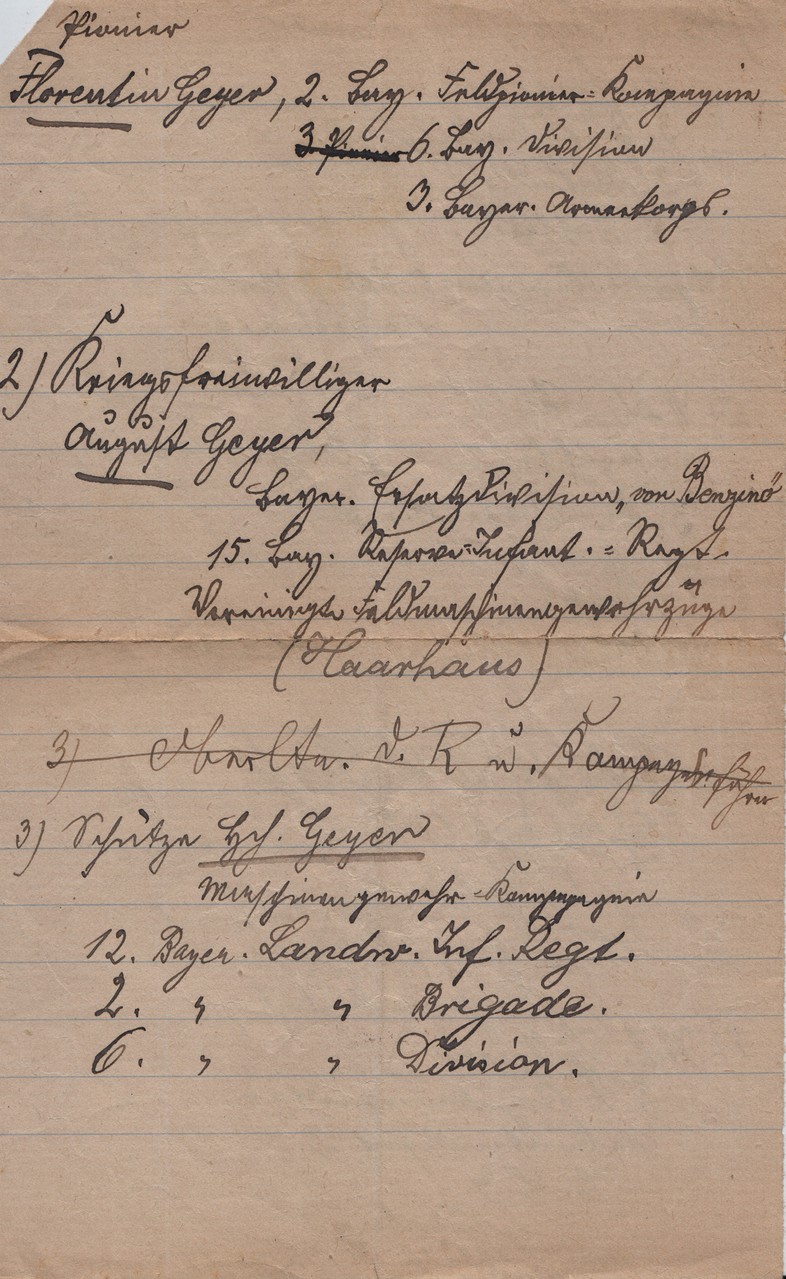 Pionier
Florentin Geyer, 2. Bay. Feldpionier=Kompagnie
3. Pionier 6. Bay. Division
3. Bayer. Armeekorps.
2) Kriegsfreiwilliger
August Geyer,
Bayer. Ersatzdivision „von Benzino"
15. Bay. Reserve=Infant.=Regt.
Vereinigte Feldmaschinengewehrzüge
(Haarhaus)
3) Oberltn. d. R u. Kompagnieführer
3) Schütze Hch. Geyer
Maschinengewehr=Kompagnie
12. Bayer. Landw. Inf. Regt.
2. " " Brigade.
6. " " Division.